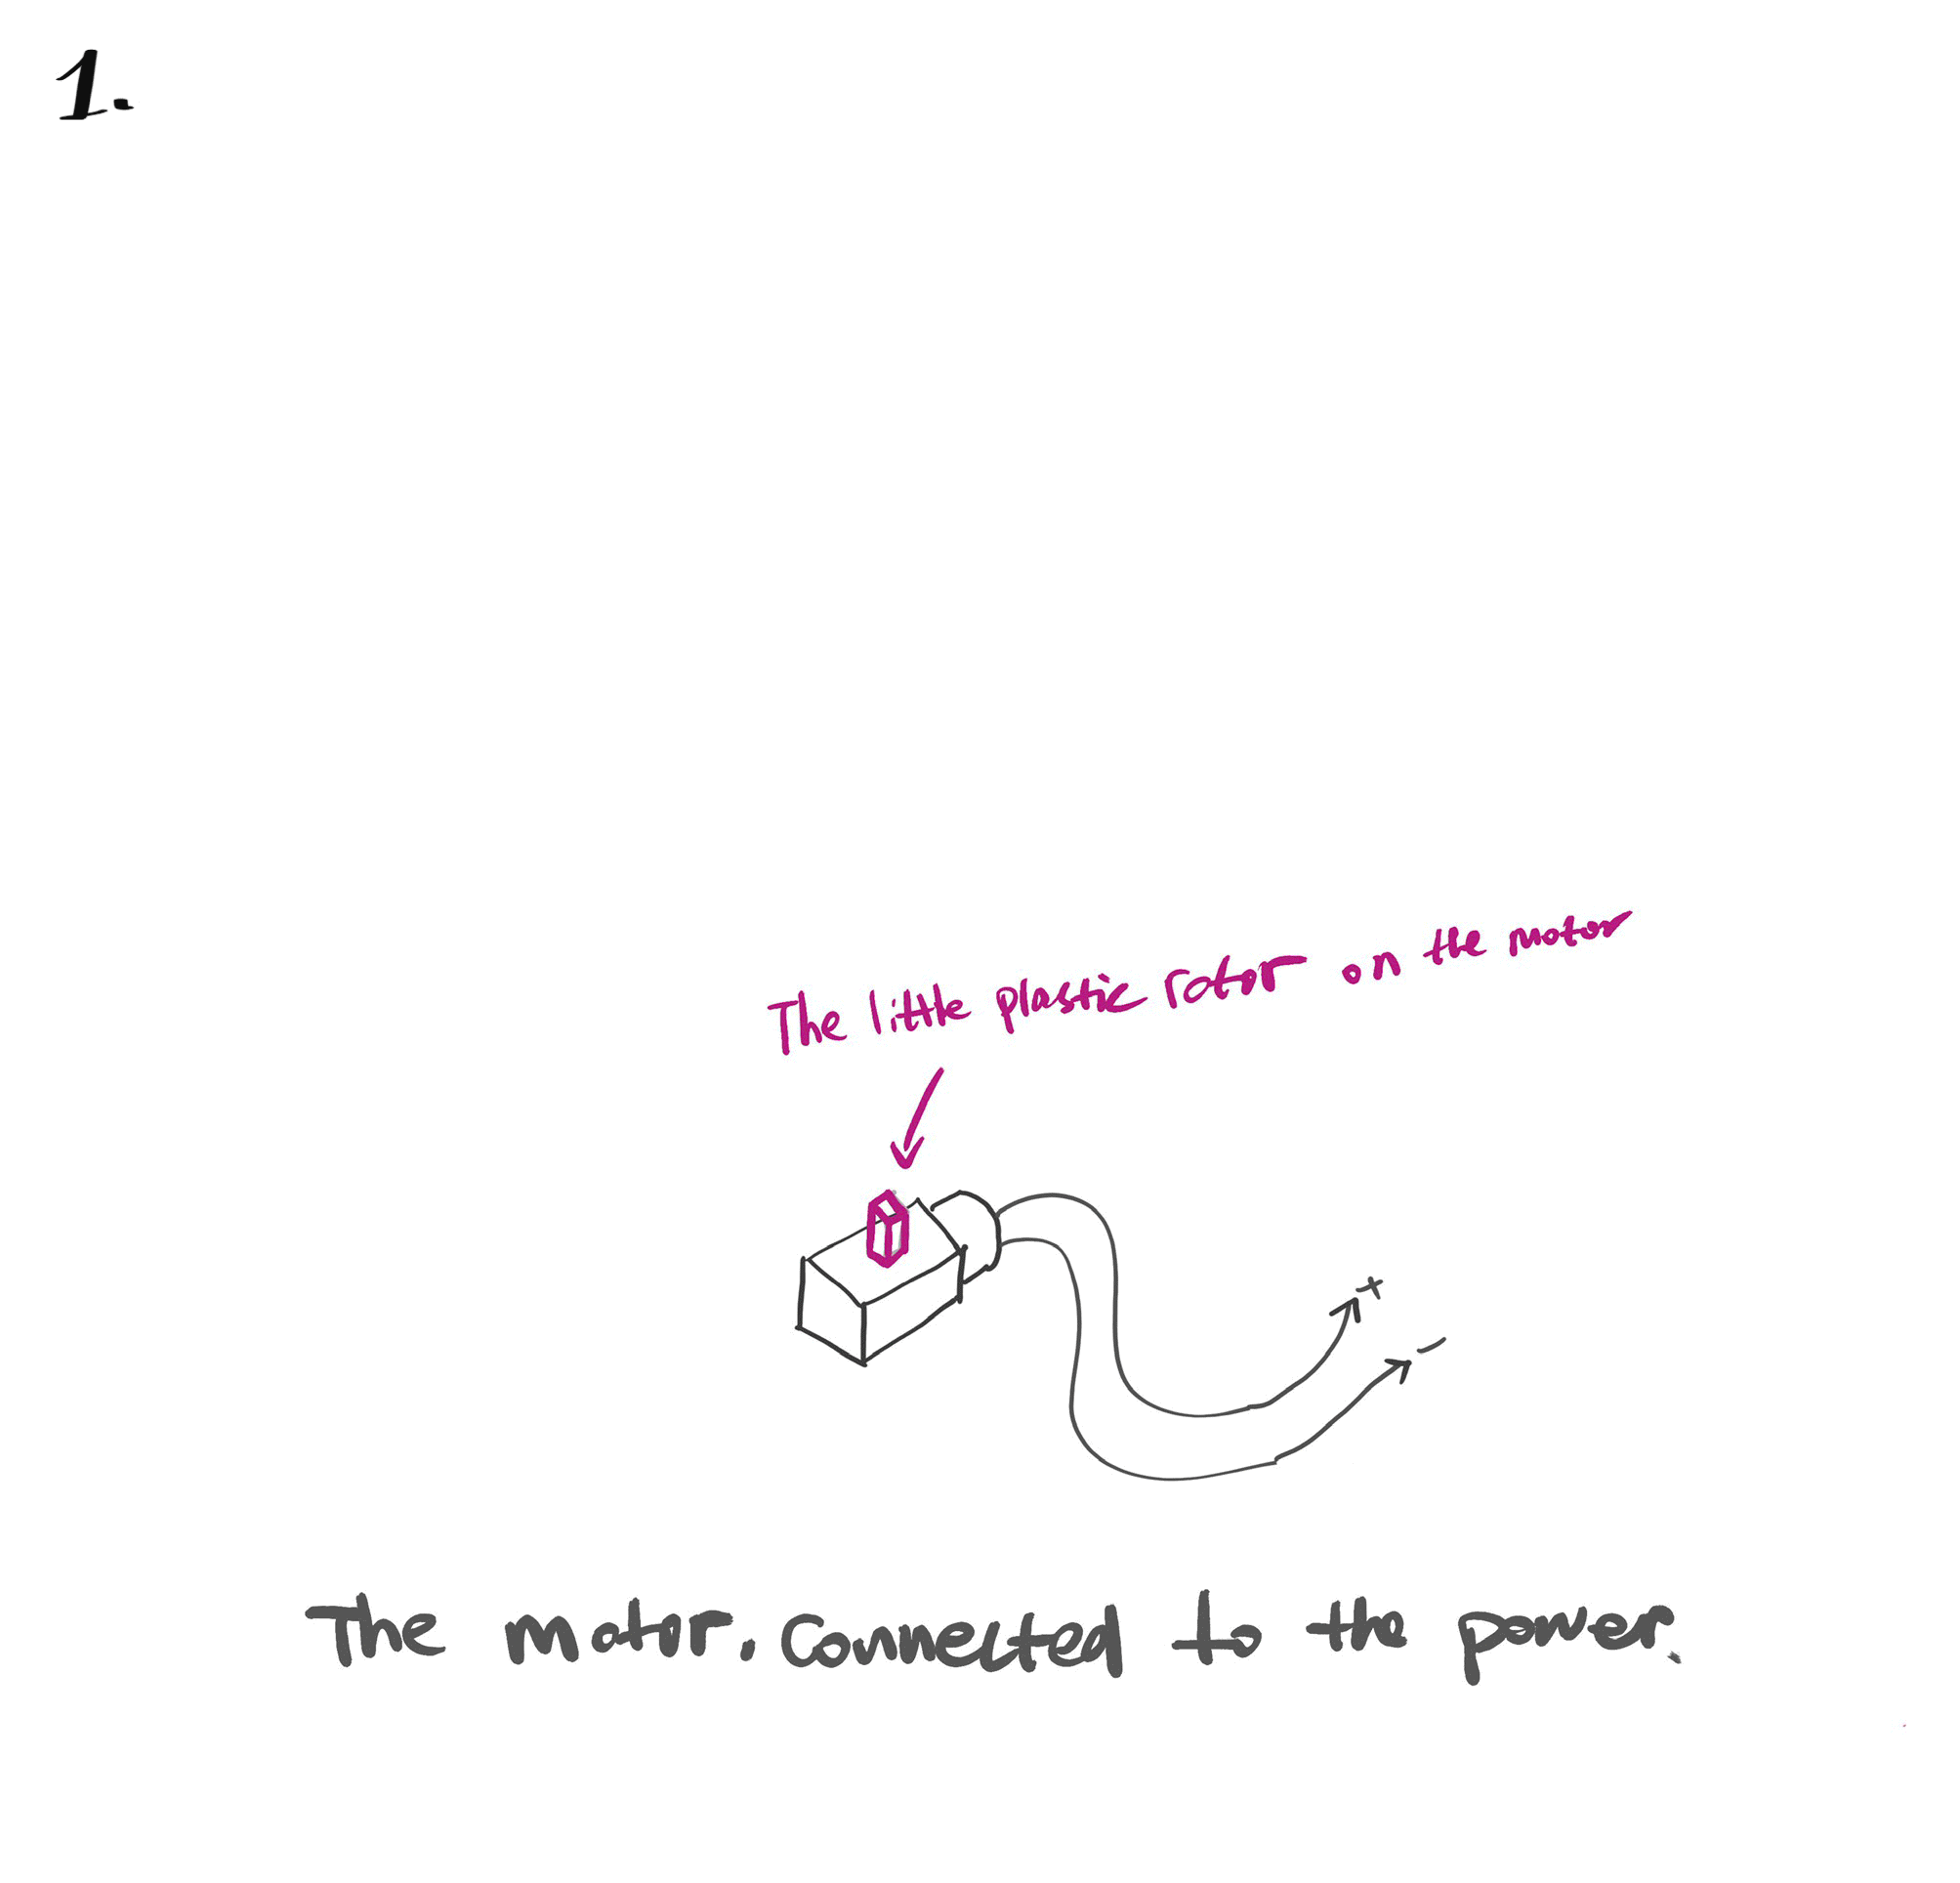 1.
The little plastic rotor on the motor
+
-
The motor. connected to the power.